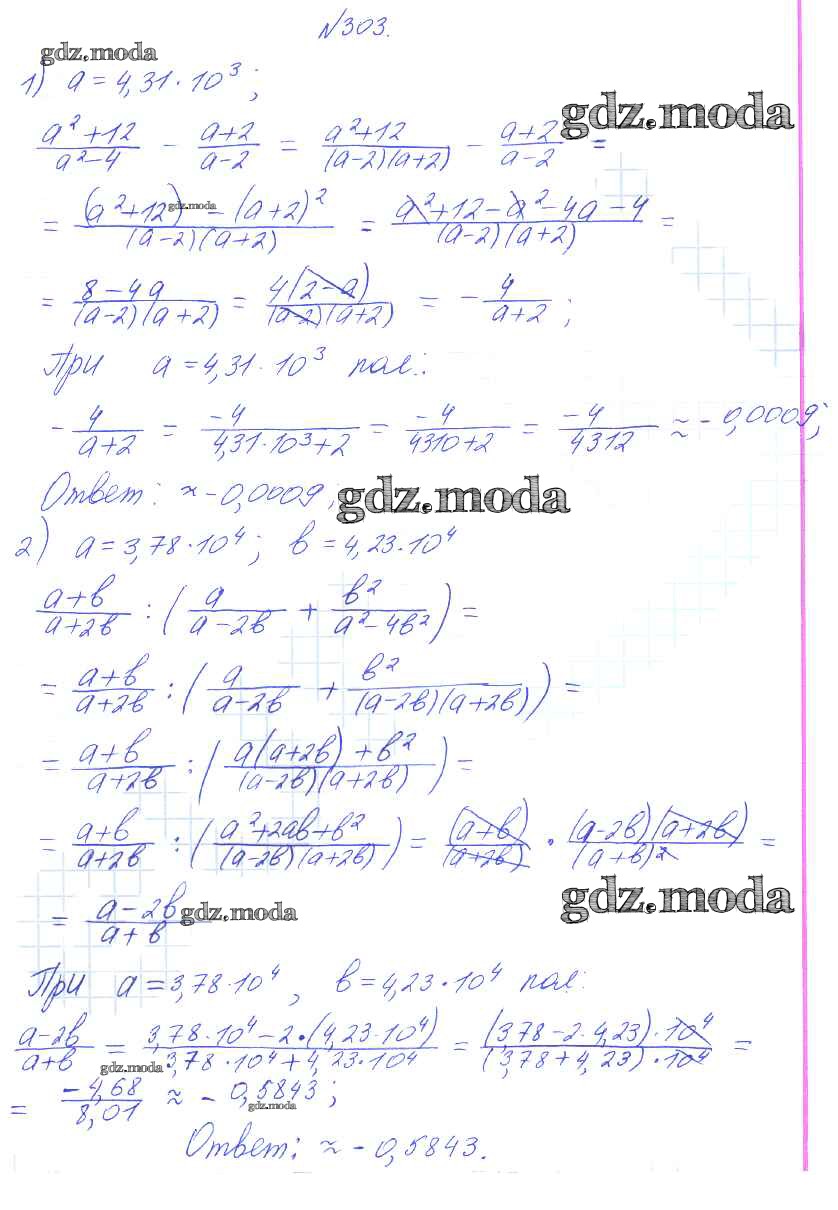 №303.
gdz.moda
1) a = 4,31·10³;
gdz.moda
(a²+12)/(a²-4) - (a+2)/(a-2) = (a²+12)/((a-2)(a+2)) - (a+2)/(a-2) =
gdz.moda
= ((a²+12) - (a+2)²)/((a-2)(a+2)) = (a²+12-a²-4a-4)/((a-2)(a+2)) =
= (8-4a)/((a-2)(a+2)) = (4(2-a))/((a-2)(a+2)) = -4/(a+2);
При a = 4,31·10³ пол.:
-4/(a+2) = -4/(4,31·10³+2) = -4/(4310+2) = -4/4312 ≈ -0,0009;
Ответ: ≈ -0,0009;
gdz.moda
2) a = 3,78·10⁴; в = 4,23·10⁴
(a+в)/(a+2в) : (a/(a-2в) + в²/(a²-4в²)) =
= (a+в)/(a+2в) : (a/(a-2в) + в²/((a-2в)(a+2в))) =
= (a+в)/(a+2в) : ((a(a+2в)+в²)/((a-2в)(a+2в))) =
= (a+в)/(a+2в) : ((a²+2ав+в²)/((a-2в)(a+2в))) = (a+в)/(a+2в) · ((a-2в)(a+2в))/(a+в)² =
= (a-2в)/(a+в)
gdz.moda
gdz.moda
При a = 3,78·10⁴, в = 4,23·10⁴ пол:
(a-2в)/(a+в) = (3,78·10⁴-2·(4,23·10⁴))/(3,78·10⁴+4,23·10⁴) = ((3,78-2·4,23)·10⁴)/((3,78+4,23)·10⁴) =
gdz.moda
= -4,68/8,01 ≈ -0,5843;
gdz.moda
Ответ: ≈ -0,5843.